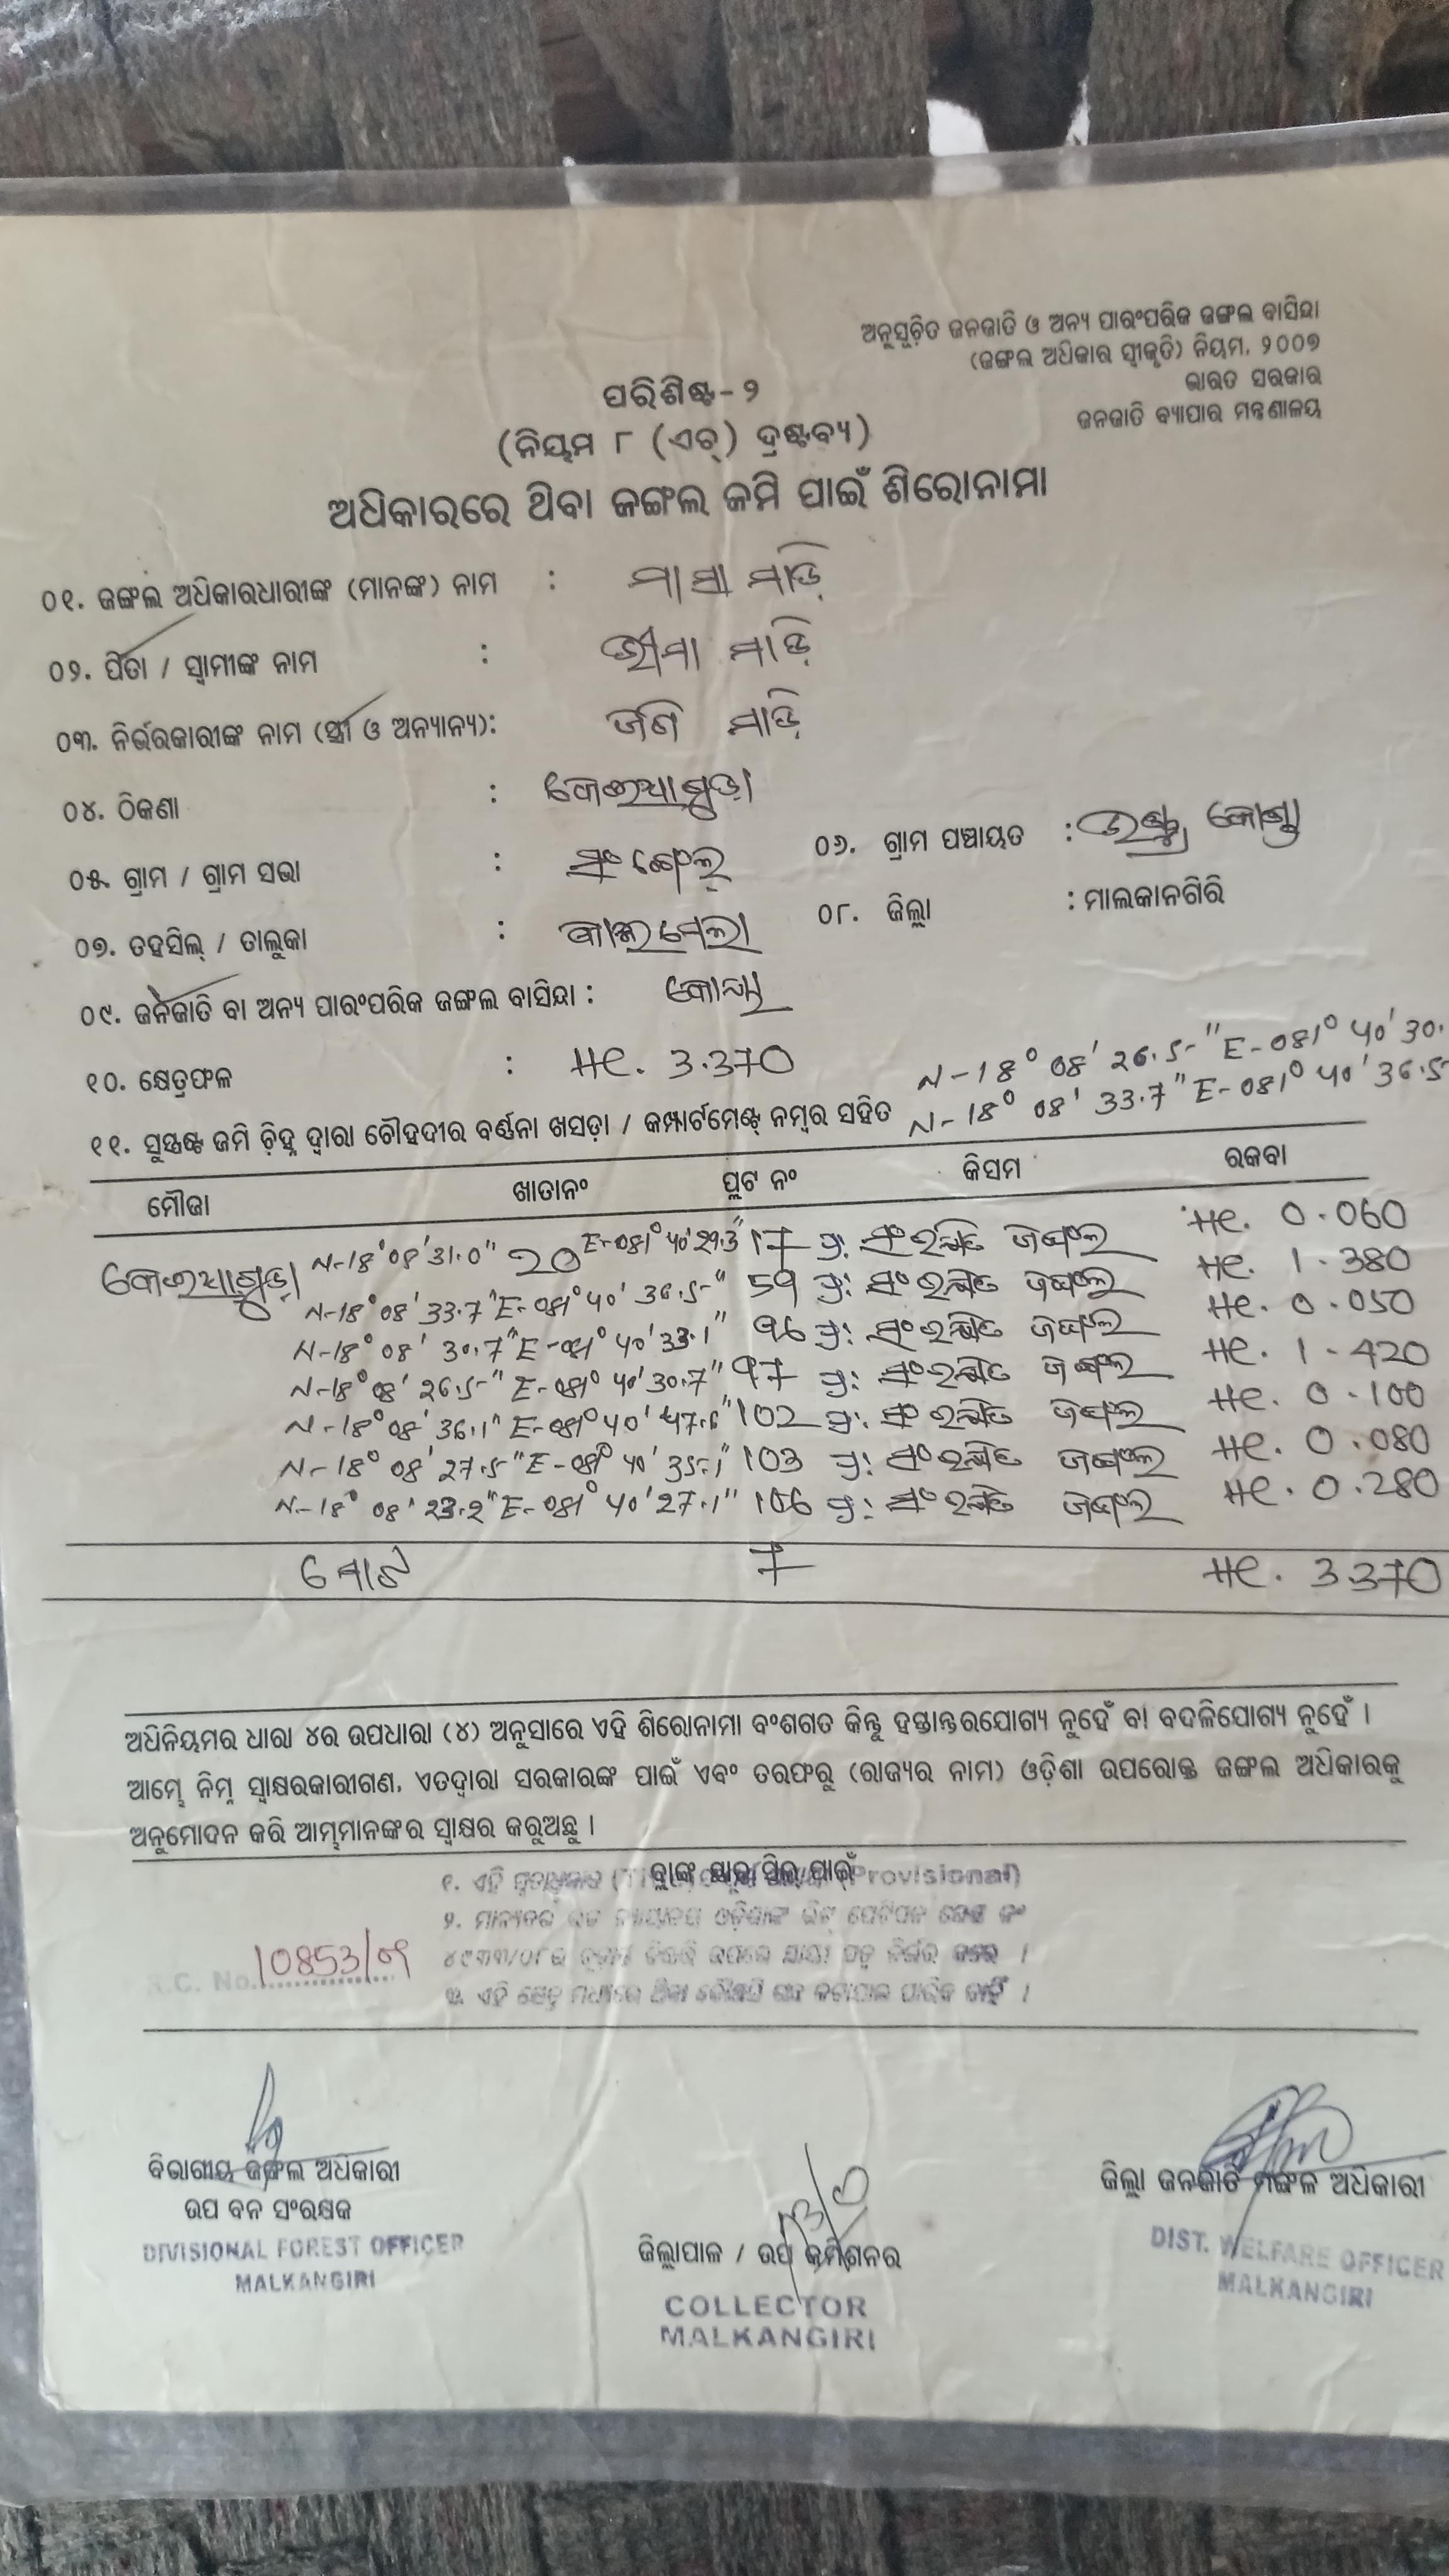 ଅନୁସୂଚିତ ଜନଜାତି ଓ ଅନ୍ୟ ପାରଂପରିକ ଜଙ୍ଗଲ ବାସିନ୍ଦା
(ଜଙ୍ଗଲ ଅଧିକାର ସ୍ୱୀକୃତି) ନିୟମ, ୨୦୦୭
ଭାରତ ସରକାର
ଜନଜାତି ବ୍ୟାପାର ମନ୍ତ୍ରଣାଳୟ
ପରିଶିଷ୍ଟ-୨
(ନିୟମ ୮ (ଏଚ୍) ଦ୍ରଷ୍ଟବ୍ୟ)
ଅଧିକାରରେ ଥିବା ଜଙ୍ଗଲ ଜମି ପାଇଁ ଶିରୋନାମା
୦୧. ଜଙ୍ଗଲ ଅଧିକାରଧାରୀଙ୍କ (ମାନଙ୍କ) ନାମ : ମାସା ମାଡ଼ି
୦୨. ପିତା / ସ୍ୱାମୀଙ୍କ ନାମ : ଭୀମା ମାଡ଼ି
୦୩. ନିର୍ଭରକାରୀଙ୍କ ନାମ (ସ୍ତ୍ରୀ ଓ ଅନ୍ୟାନ୍ୟ): ଜଣି ମାଡ଼ି
୦୪. ଠିକଣା :
୦୫. ଗ୍ରାମ / ଗ୍ରାମ ସଭା :
୦୬. ଗ୍ରାମ ପଞ୍ଚାୟତ : କୋଣ୍ଡା
୦୭. ତହସିଲ୍ / ତାଲୁକା : କାଲିମେଲା
୦୮. ଜିଲ୍ଲା : ମାଲକାନଗିରି
୦୯. ଜନଜାତି ବା ଅନ୍ୟ ପାରଂପରିକ ଜଙ୍ଗଲ ବାସିନ୍ଦା : କୋୟା
୧୦. କ୍ଷେତ୍ରଫଳ : He. 3.370
N-18° 08' 26.5" E-081° 40' 30.
N-18° 08' 33.7" E-081° 40' 36.5
୧୧. ସୁସ୍ପଷ୍ଟ ଜମି ଚିହ୍ନ ଦ୍ୱାରା ଚୌହଦୀର ବର୍ଣ୍ଣନା ଖସଡ଼ା / କମ୍ପାର୍ଟମେଣ୍ଟ୍ ନମ୍ବର ସହିତ
ମୌଜା ଖାତାନଂ ପ୍ଲଟ ନଂ କିସମ ରକବା
N-18° 08' 31.0" 20 E-081° 40' 29.3" 17 ପ୍ର: ସଂରକ୍ଷିତ ଜଙ୍ଗଲ He. 0.060
N-18° 08' 33.7" E-081° 40' 36.5" 59 ପ୍ର: ସଂରକ୍ଷିତ ଜଙ୍ଗଲ He. 1.380
N-18° 08' 30.7" E-081° 40' 33.1" 96 ପ୍ର: ସଂରକ୍ଷିତ ଜଙ୍ଗଲ He. 0.050
N-18° 08' 26.5" E-081° 40' 30.7" 97 ପ୍ର: ସଂରକ୍ଷିତ ଜଙ୍ଗଲ He. 1.420
N-18° 08' 36.1" E-081° 40' 102 ପ୍ର: ସଂରକ୍ଷିତ ଜଙ୍ଗଲ He. 0.100
N-18° 08' 27.5" E-081° 40' 35.1" 103 ପ୍ର: ସଂରକ୍ଷିତ ଜଙ୍ଗଲ He. 0.080
N-18° 08' 23.2" E-081° 40' 27.1" 106 ପ୍ର: ସଂରକ୍ଷିତ ଜଙ୍ଗଲ He. 0.280
ମୋଟ 7 He. 3.370
ଅଧିନିୟମର ଧାରା ୪ର ଉପଧାରା (୪) ଅନୁସାରେ ଏହି ଶିରୋନାମା ବଂଶଗତ କିନ୍ତୁ ହସ୍ତାନ୍ତରଯୋଗ୍ୟ ନୁହେଁ ବା ବଦଳିଯୋଗ୍ୟ ନୁହେଁ ।
ଆମ୍ଭେ ନିମ୍ନ ସ୍ୱାକ୍ଷରକାରୀଗଣ, ଏତଦ୍ୱାରା ସରକାରଙ୍କ ପାଇଁ ଏବଂ ତରଫରୁ (ରାଜ୍ୟର ନାମ) ଓଡ଼ିଶା ଉପରୋକ୍ତ ଜଙ୍ଗଲ ଅଧିକାରକୁ
ଅନୁମୋଦନ କରି ଆମ୍ଭମାନଙ୍କର ସ୍ୱାକ୍ଷର କରୁଅଛୁ ।
୧. ଏହି (Provisional)
R.C. No. 10853/09
ବିଭାଗୀୟ ଜଙ୍ଗଲ ଅଧିକାରୀ
ଉପ ବନ ସଂରକ୍ଷକ
DIVISIONAL FOREST OFFICER
MALKANGIRI
ଜିଲ୍ଲାପାଳ / ଉପ କମିଶନର
COLLECTOR
MALKANGIRI
ଜିଲ୍ଲା ଜନଜାତି ମଙ୍ଗଳ ଅଧିକାରୀ
DIST. WELFARE OFFICER
MALKANGIRI